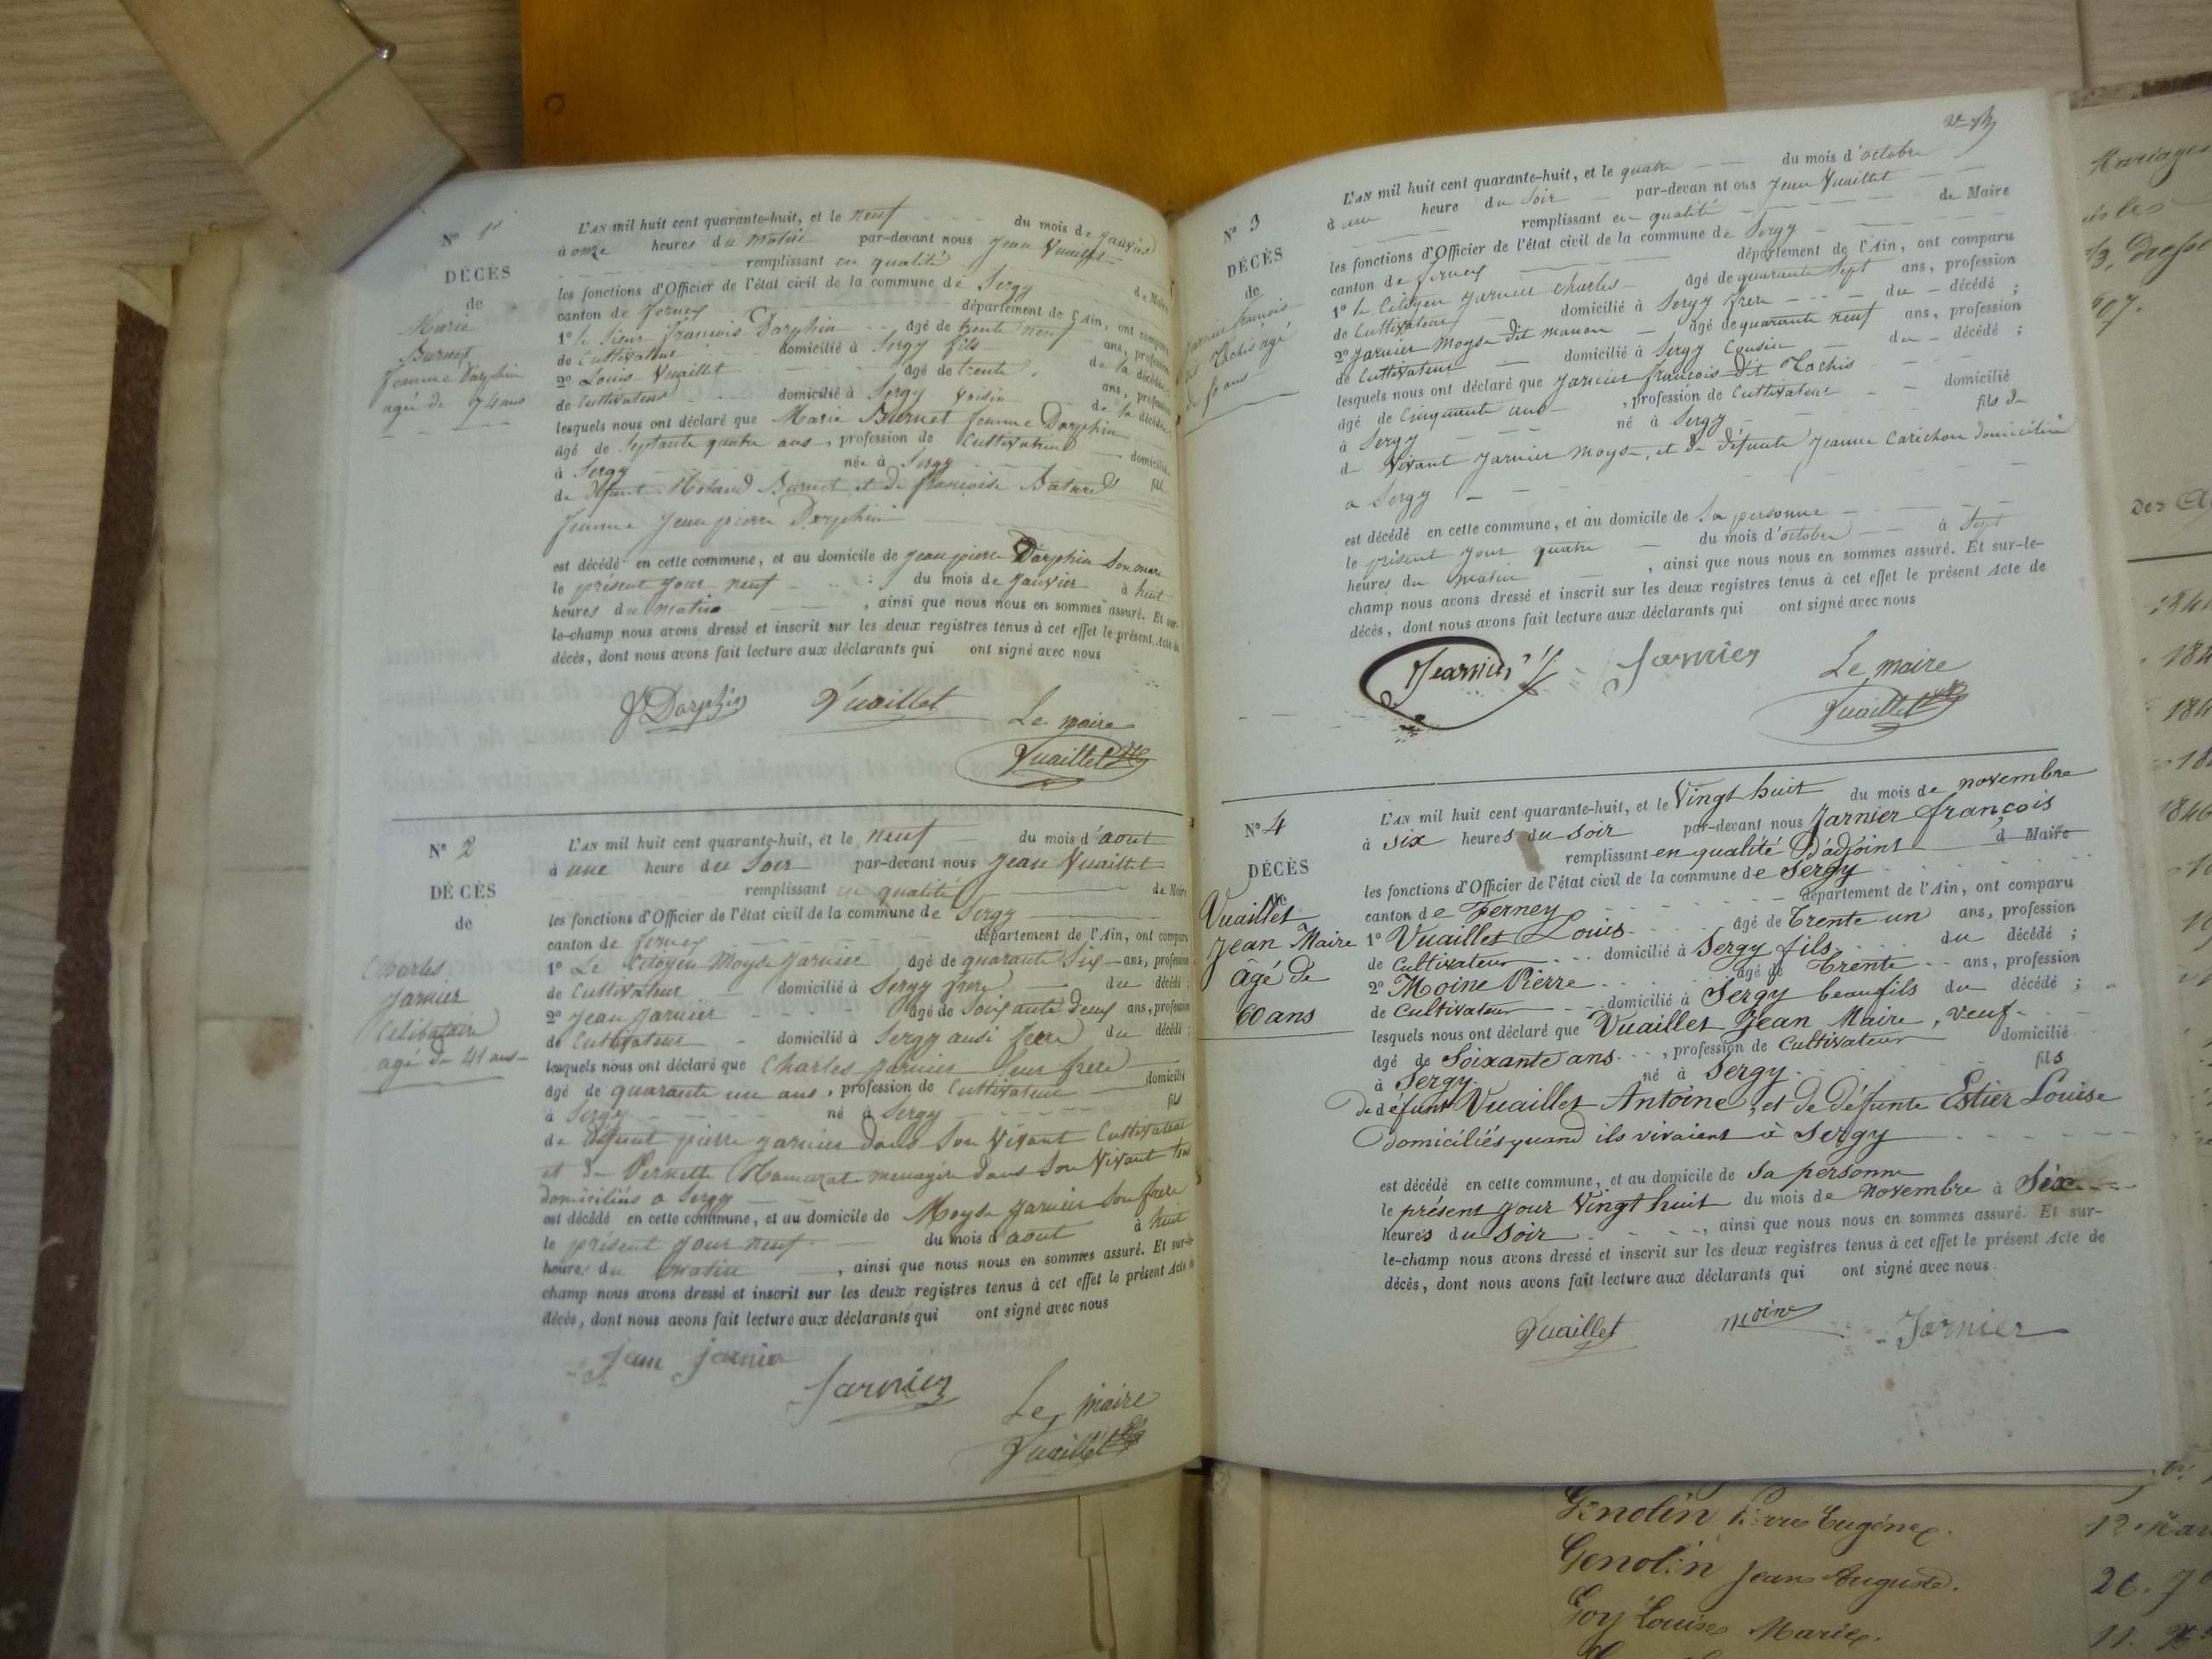 N° 1er
DÉCÈS
de
Marie
Burnet
femme Darphin
agée de 74 ans
L'AN mil huit cent quarante-huit, et le neuf du mois de janvier
à onze heures du matin par-devant nous Jean Vuaillet
remplissant en qualité de Maire
les fonctions d'Officier de l'état civil de la commune de Sergy
canton de ferney département de l'Ain, ont comparu
1° le Sieur françois Darphin âgé de trente neuf ans, profession
de Cultivateur domicilié à Sergy fils de la décédée
2° Louis Vuaillet âgé de trente ans, profession
de Cultivateur domicilié à Sergy voisin de la décédée
lesquels nous ont déclaré que Marie Burnet femme Darphin
âgé de septante quatre ans, profession de Cultivateur domicilié
à Sergy née à Sergy fille
de défunt Burnet et de françoise
femme Jean pierre Darphin
est décédé en cette commune, et au domicile de jean pierre Darphin Son mari
le présent jour neuf du mois de janvier à huit
heures du matin, ainsi que nous nous en sommes assuré. Et sur-
le-champ nous avons dressé et inscrit sur les deux registres tenus à cet effet le présent Acte de
décès, dont nous avons fait lecture aux déclarants qui ont signé avec nous
Darphin Vuaillet Le maire
Vuaillet
N° 2
DÉCÈS
de
Charles
Jarnier
Célibataire
agé de 41 ans
L'AN mil huit cent quarante-huit, et le neuf du mois d'aout
à une heure du Soir par-devant nous Jean Vuaillet
remplissant en qualité de Maire
les fonctions d'Officier de l'état civil de la commune de Sergy
canton de ferney département de l'Ain, ont comparu
1° Le Citoyen Moyse Jarnier âgé de quarante Six ans, profession
de Cultivateur domicilié à Sergy frere du décédé;
2° Jean Jarnier âgé de Soixante deux ans, profession
de Cultivateur domicilié à Sergy ausi frere du décédé;
lesquels nous ont déclaré que Charles Jarnier leur frere
âgé de quarante un ans, profession de Cultivateur domicilié
à Sergy né à Sergy fils
de défunt pierre Jarnier dans Son Vivant Cultivateur
et de Pernette menagère dans Son Vivant tous
domiciliés a Sergy
est décédé en cette commune, et au domicile de Moyse Jarnier Son frere
le présent jour neuf du mois d'aout à huit
heures du matin, ainsi que nous nous en sommes assuré. Et sur-le-
champ nous avons dressé et inscrit sur les deux registres tenus à cet effet le présent Acte de
décès, dont nous avons fait lecture aux déclarants qui ont signé avec nous
Jean Jarnier
Jarnier Le maire
Vuaillet
N° 3
DÉCÈS
de
Jarnier françois
dit Tochis agé
de 50 ans
L'AN mil huit cent quarante-huit, et le quatre du mois d'octobre
à une heure du Soir par-devan nt ous Jean Vuaillet
remplissant en qualité de Maire
les fonctions d'Officier de l'état civil de la commune de Sergy
canton de ferney département de l'Ain, ont comparu
1° le Citoyen Jarnier Charles âgé de quarante Sept ans, profession
de Cultivateur domicilié à Sergy frere du décédé;
2° Jarnier Moyse dit manon âgé de quarante neuf ans, profession
de Cultivateur domicilié à Sergy Cousin du décédé;
lesquels nous ont déclaré que Jarnier françois dit Tochis
âgé de Cinquante ans, profession de Cultivateur domicilié
à Sergy né à Sergy fils de
d Vivant Jarnier Moyse, et de défunte Jeanne Carichon domiciliés
a Sergy
est décédé en cette commune, et au domicile de Sa personne
le présent jour quatre du mois d'octobre à Sept
heures du matin, ainsi que nous nous en sommes assuré. Et sur-le-
champ nous avons dressé et inscrit sur les deux registres tenus à cet effet le présent Acte de
décès, dont nous avons fait lecture aux déclarants qui ont signé avec nous
Jearnier Jarnier Le maire
Vuaillet
N° 4
DÉCÈS
de
Vuaillet
Jean Maire
âgé de
60 ans
L'AN mil huit cent quarante-huit, et le Vingt huit du mois de novembre
à six heures du soir par-devant nous Jarnier françois
remplissant en qualité D'adjoint d Maire
les fonctions d'Officier de l'état civil de la commune de Sergy
canton de Ferney département de l'Ain, ont comparu
1° Vuaillet Louis âgé de Trente un ans, profession
de Cultivateur domicilié à Sergy fils du décédé;
2° Moine Pierre âgé de Trente ans, profession
de Cultivateur domicilié à Sergy beaufils du décédé;
lesquels nous ont déclaré que Vuaillet Jean Maire, veuf
âgé de Soixante ans, profession de Cultivateur domicilié
à Sergy né à Sergy fils
De défunt Vuaillet Antoine, et de Défunte Estier Louise
Domiciliés quand ils vivaient à Sergy
est décédé en cette commune, et au domicile de Sa personne
le présent jour Vingt huit du mois de novembre à Six
heures du Soir, ainsi que nous nous en sommes assuré. Et sur-
le-champ nous avons dressé et inscrit sur les deux registres tenus à cet effet le présent Acte de
décès, dont nous avons fait lecture aux déclarants qui ont signé avec nous
Vuaillet Moine Jarnier
Mariages
Genolin Pierre Eugène.
Genolin Jean Auguste. 26.
Goy Louise Marie. 11.